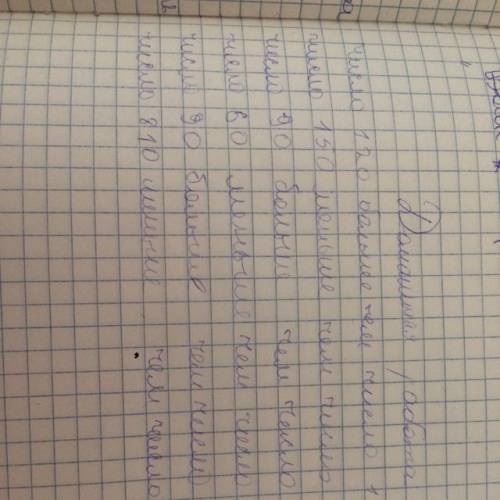 Домашняя работа
число 120 больше чем число
число 150 меньше чем число
число 90 больше чем число
число 60 меньше чем число
число 90 больше чем число
число 810 меньше чем число